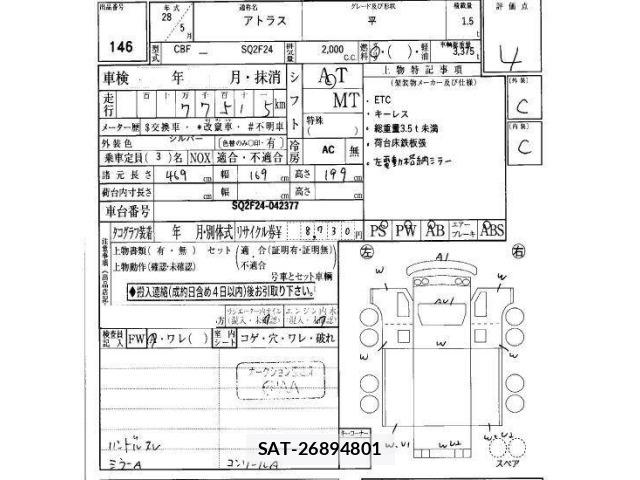 出品番号 年 28 月 5 通称名 アトラス グレード及び形状 平 積載量 1.5 t 評価点
146 型式 CBF — SQ2F24 排気量 2,000 C.C. 燃料 ガ・( )・軽油 車輌総重量 3,375 t 4
車検 年 月・抹消 シフト AT 上物特記事項 外装 C
(架装物メーカー及び仕様)
走行 百 十 万 千 百 十 一
7 7 5 1 5 km MT ・ETC
・キーレス
メーター歴 $交換車・*改竄車・#不明車 特殊 ( ) ・総重量3.5t未満 内装 C
外装色 シルバー (色替のみ○印・有) 冷房 AC 無 ・荷台床鉄板張
乗車定員 (3) 名 NOX 適合・不適合 ・左電動格納ミラー
諸元長さ 469 cm 幅 169 cm 高さ 199 cm
荷台内寸長さ cm 幅 cm 高さ cm
車台番号 SQ2F24-042377
タコグラフ装着 年 月・別体式 リサイクル券¥ 8,730円 PS PW AB エアーブレーキ ABS
注意事項
上物書類(有・無) セット(適合(証明有・証明無)
上物動作(確認・未確認) (不適合
号車とセット車輌
◆搬入遅絡(成約日含め4日以内)後お引取り下さい。
左 右
A1
W W
AU1
W W
W W
W.U1 W U2 W.U2
スペア
検査員記入 FW ・ワレ( ) 室内シート コゲ・穴・ワレ・破れ
ハンドルスレ
ミラーA コンソールA
コーナー
SAT-26894801